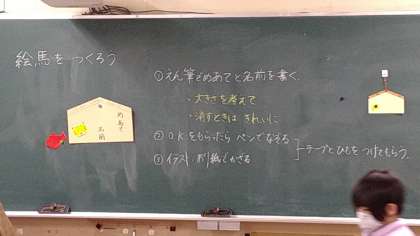 絵馬をつくろう
めあて
名前
①えん筆でめあてと名前を書く。
・大きさを考えて
・消すときは きれいに
②OKをもらったら ペンでなぞる
③イラスト 折り紙でかざる
テープとひもをつけてもらう。